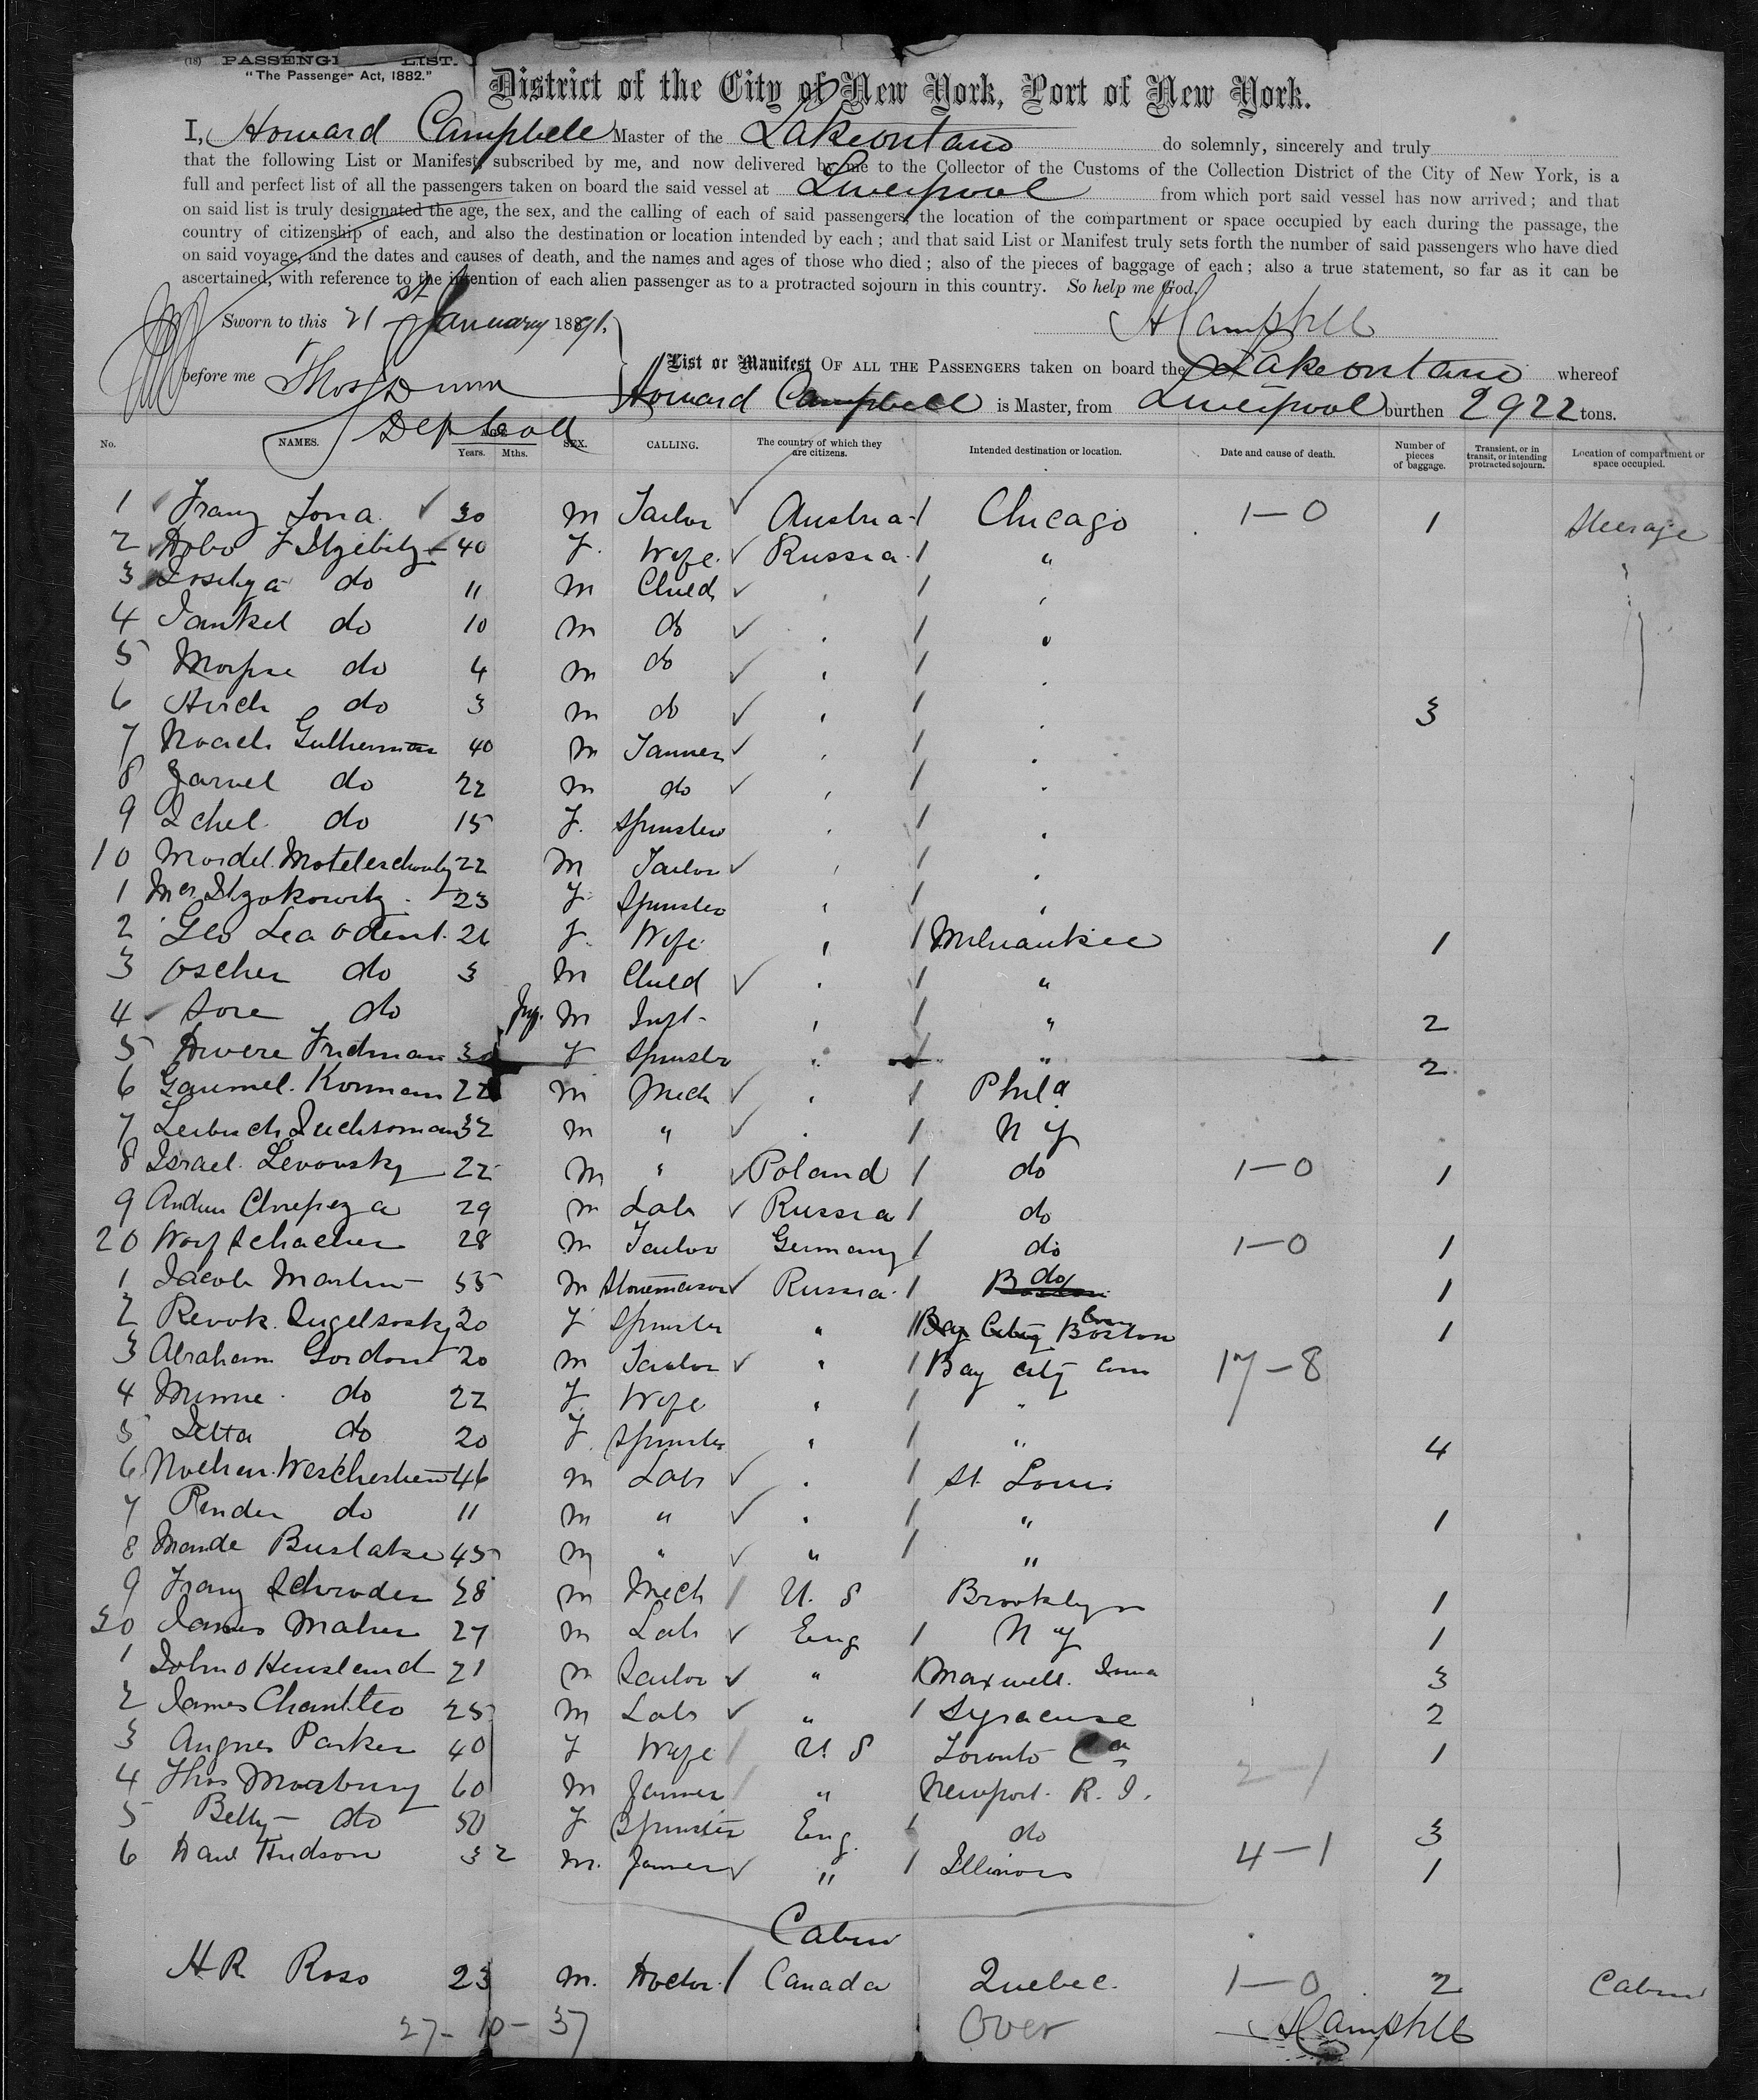 (18) PASSENGER LIST.
"The Passenger Act, 1882."
District of the City of New York, Port of New York.
I, Howard Campbell Master of the Lakeontario do solemnly, sincerely and truly
that the following List or Manifest, subscribed by me, and now delivered by me to the Collector of the Customs of the Collection District of the City of New York, is a
full and perfect list of all the passengers taken on board the said vessel at Liverpool from which port said vessel has now arrived; and that
on said list is truly designated the age, the sex, and the calling of each of said passengers, the location of the compartment or space occupied by each during the passage, the
country of citizenship of each, and also the destination or location intended by each; and that said List or Manifest truly sets forth the number of said passengers who have died
on said voyage, and the dates and causes of death, and the names and ages of those who died; also of the pieces of baggage of each; also a true statement, so far as it can be
ascertained, with reference to the intention of each alien passenger as to a protracted sojourn in this country. So help me God.
Sworn to this 21st January 1891. HCampbell
before me Thos Dunn List or Manifest OF ALL THE PASSENGERS taken on board the Lakeontario whereof
Howard Campbell is Master, from Liverpool burthen 2922 tons.
Dep Coll
No. NAMES. AGE Years. Mths. SEX. CALLING. The country of which they are citizens. Intended destination or location. Date and cause of death. Number of pieces of baggage. Transient, or in transit, or intending protracted sojourn. Location of compartment or space occupied.
1 Franz Jona 30 M Tailor Austria 1 Chicago 1-0 1 Steerage
2 40 F. Wife Russia 1 "
3 do 11 M Child 1
4 Jankel do 10 M do 1
5 do 4 M do 1
6 Hirch do 3 M do 1 3
7 Noach Gutherman 40 M Tanner 1
8 do 22 M do 1
9 Ichel do 15 F. Spinster 1
10 Mordel 22 M Tailor 1
1 Itzokowitz 23 F Spinster 1
2 Geo Lea 26 F. Wife 1 Milwaukee 1
3 Oscher do 3 M Child 1 "
4 Sore do M Inft 1 " 2
5 Fridman 30 F Spinster 1 " 2
6 Korman 22 M Mech 1 Phila
7 32 M " 1 N Y
8 Israel Levovsky 22 M " Poland 1 do 1-0 1
9 29 M Lab Russia 1 do
20 28 M Tailor Germany 1 do 1-0 1
1 Jacob Martin 55 M Stonemason Russia 1 Boston do 1
2 20 F Spinster " 1 Bay City Boston 1
3 Abraham Gordon 20 M Tailor " 1 Bay City 17-8
4 Minnie do 22 F. Wife " 1 "
5 Detta do 20 F. Spinster " 1 " 4
6 46 M Lab 1 St Louis
7 Pender do 11 M " 1 " 1
8 45 M " " 1 "
9 Franz Schroder 38 M Mech 1 U. S Brooklyn 1
30 James Maher 27 M Lab Eng 1 N Y 1
1 John 21 M Sailor " 1 Maxwell Iowa 3
2 James 25 M Lab " 1 Syracuse 2
3 Augnes Parker 40 F Wife U. S Toronto Ca 1
4 Thos 60 M Farmer " Newport R. I. 2-1
5 Betty do 50 F Spinster Eng. 1 do 3
6 Hudson 32 M. Farmer " 1 Illinois 4-1 1
Cabin
H R Ross 23 M. Doctor 1 Canada Quebec. 1-0 2 Cabin
27-10-37 Over HCampbell